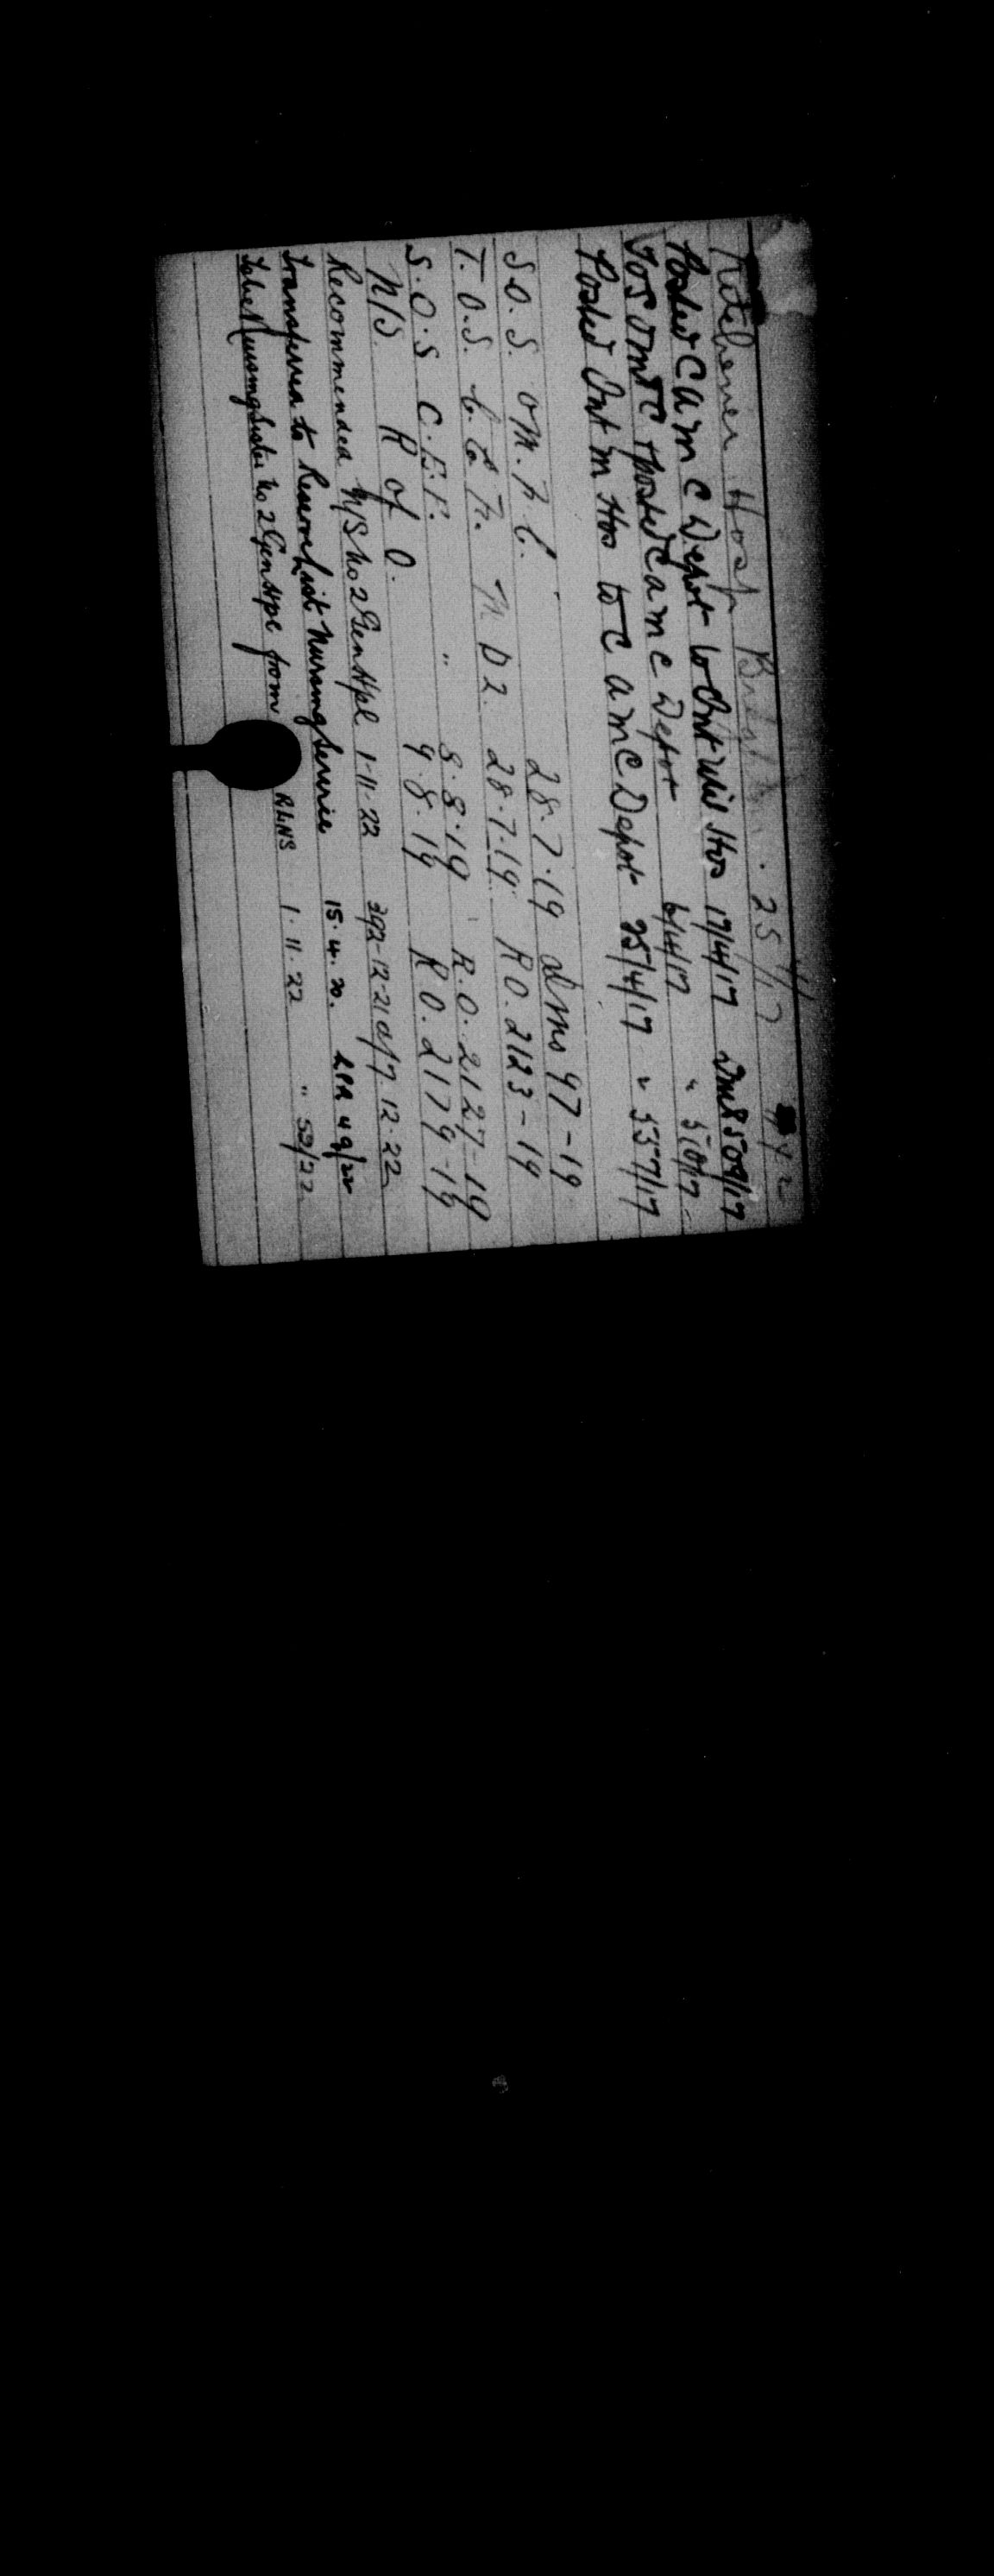 Kitchener Hosp 25/ /17
Posted C am C Depot to Ont Mil Hos 17/4/17 Dms 509/17
TOS OMTC & posted C am C Depot 6/4/17 " 510/17
Posted Ont m Hos to C am C Depot 25/4/17 " 557/17
S.O.S. O.M.F.C. 28.7.19 dms 97-19
T.O.S. C.E.F. M D 2. 28.7.19 R.O. 2123-19
S.O.S C.E.F. " 8.8.19 R.O. 2127-19
N/S. R of O. 9.8.19 R.O. 2179-19
Recommended N/S No 2 Gen Hpl 1-11-22 392-12-21 d/7.12.22
Transferred to Reserve List Nursing Service 15.4.20. APR 49/22
To be Nursing Sister No 2 Gen Hpl from RLNS 1.11.22 " 59/22